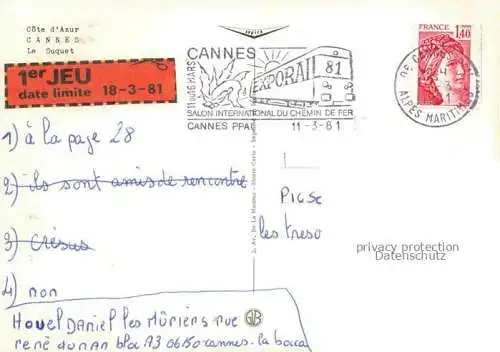 Côte d'Azur
CANNES
Le Suquet
1er JEU
date limite 18-3-81
CANNES
11 au 16 MARS
EXPORAIL 81
SALON INTERNATIONAL DU CHEMIN DE FER
CANNES PPAL 11-3-81
FRANCE
1,40
06 CANNES
ALPES MARITIMES
1) à la page 28
2) ils sont amis de rencontre
3) Crésus
4) non
Houel Daniel les Mûriers rue
rené 06150 cannes-la bocca
PICSC
les treso
privacy protection
Datenschutz